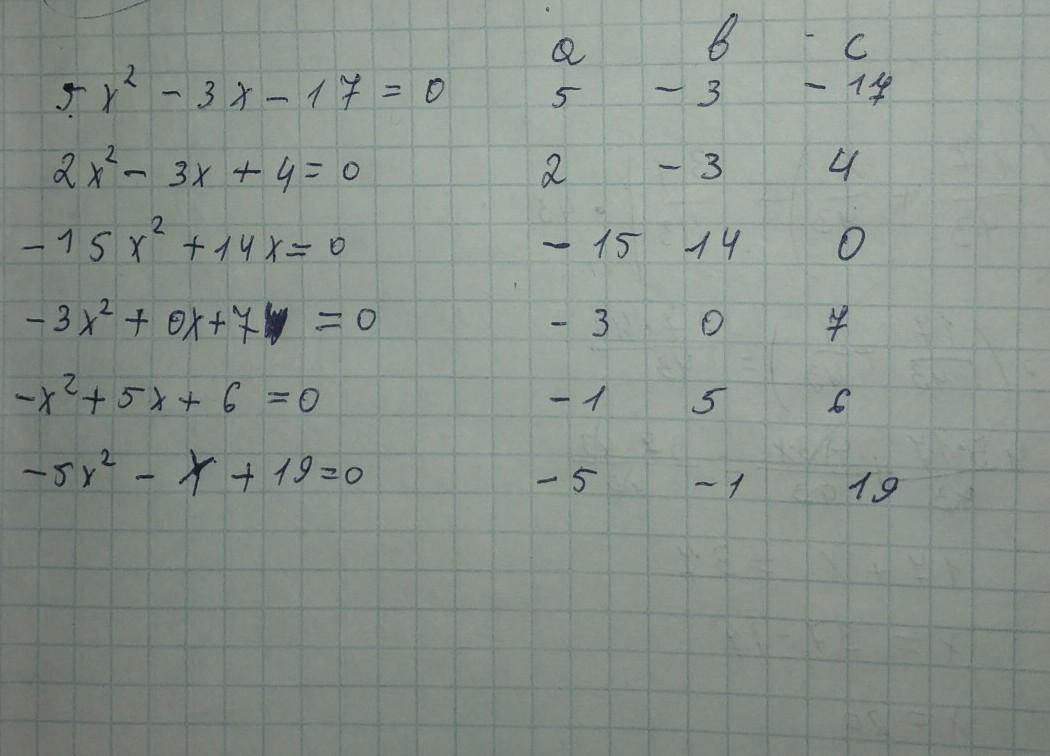 a в c
5x² - 3x - 17 = 0 5 - 3 - 17
2x² - 3x + 4 = 0 2 - 3 4
- 15x² + 14x = 0 - 15 14 0
- 3x² + 0x + 7 = 0 - 3 0 7
-x² + 5x + 6 = 0 - 1 5 6
- 5x² - x + 19 = 0 - 5 - 1 19